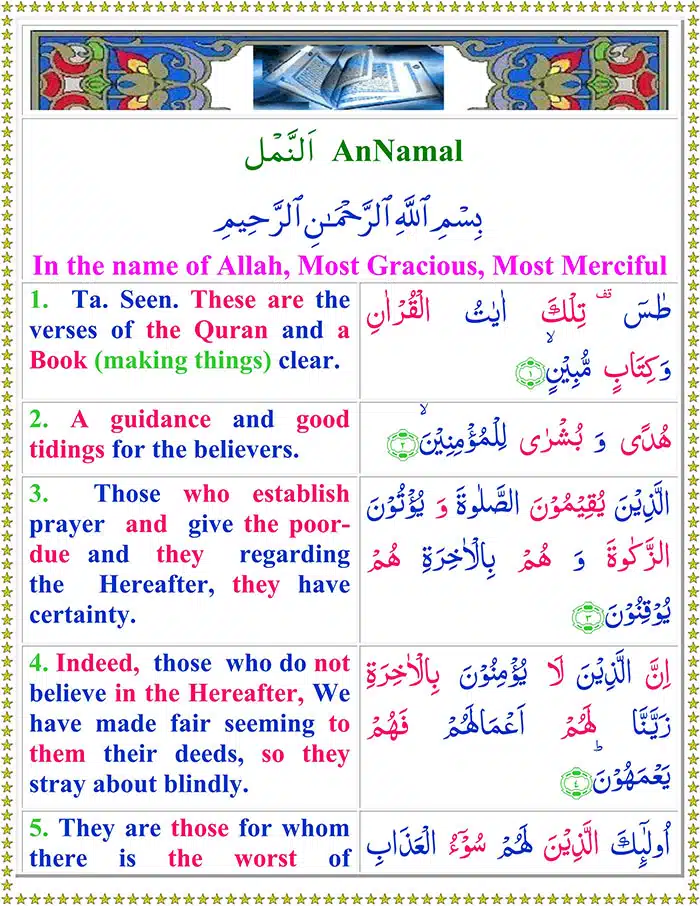 اَلنَّمْل AnNamal
بِسْمِ ٱللَّهِ ٱلرَّحْمَـٰنِ ٱلرَّحِيمِ
In the name of Allah, Most Gracious, Most Merciful
1. Ta. Seen. These are the
verses of the Quran and a
Book (making things) clear.
طٰسٓ ۚ قف تِلْكَ اٰيٰتُ الْقُرْاٰنِ
وَ كِتَابٍ مُّبِيْنٍۙ ﴿۱﴾
2. A guidance and good
tidings for the believers.
هُدًى وَ بُشْرٰى لِلْمُؤْمِنِيْنَۙ ﴿۲﴾
3. Those who establish
prayer and give the poor-
due and they regarding
the Hereafter, they have
certainty.
الَّذِيْنَ يُقِيْمُوْنَ الصَّلٰوةَ وَ يُؤْتُوْنَ
الزَّكٰوةَ وَ هُمْ بِالْاٰخِرَةِ هُمْ
يُوْقِنُوْنَ ﴿۳﴾
4. Indeed, those who do not
believe in the Hereafter, We
have made fair seeming to
them their deeds, so they
stray about blindly.
اِنَّ الَّذِيْنَ لَا يُؤْمِنُوْنَ بِالْاٰخِرَةِ
زَيَّنَّا لَهُمْ اَعْمَالَهُمْ فَهُمْ
يَعْمَهُوْنَؕ ﴿۴﴾
5. They are those for whom
there is the worst of
اُولٰٓئِكَ الَّذِيْنَ لَهُمْ سُوْٓءُ الْعَذَابِ